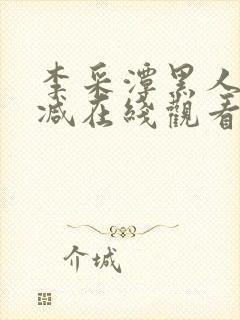 李采潭黑人
减在綫觀看
介城